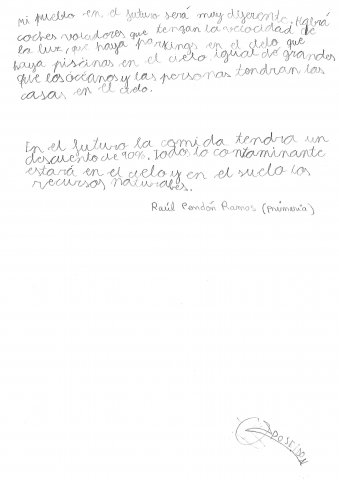 Mi pueblo en el futuro será muy diferente. Habrá
coches voladores que tengan la velocidad de
la luz, que haya parkings en el cielo que
haya piscinas en el cielo igual de grandes
que los océanos y las personas tendran las
casas en el cielo.
En el futuro la comida tendra un
descuento de 90%. Todo lo contaminante
estará en el cielo y en el suelo los
recursos naturales.
Raúl Pendón Ramos (primaria)